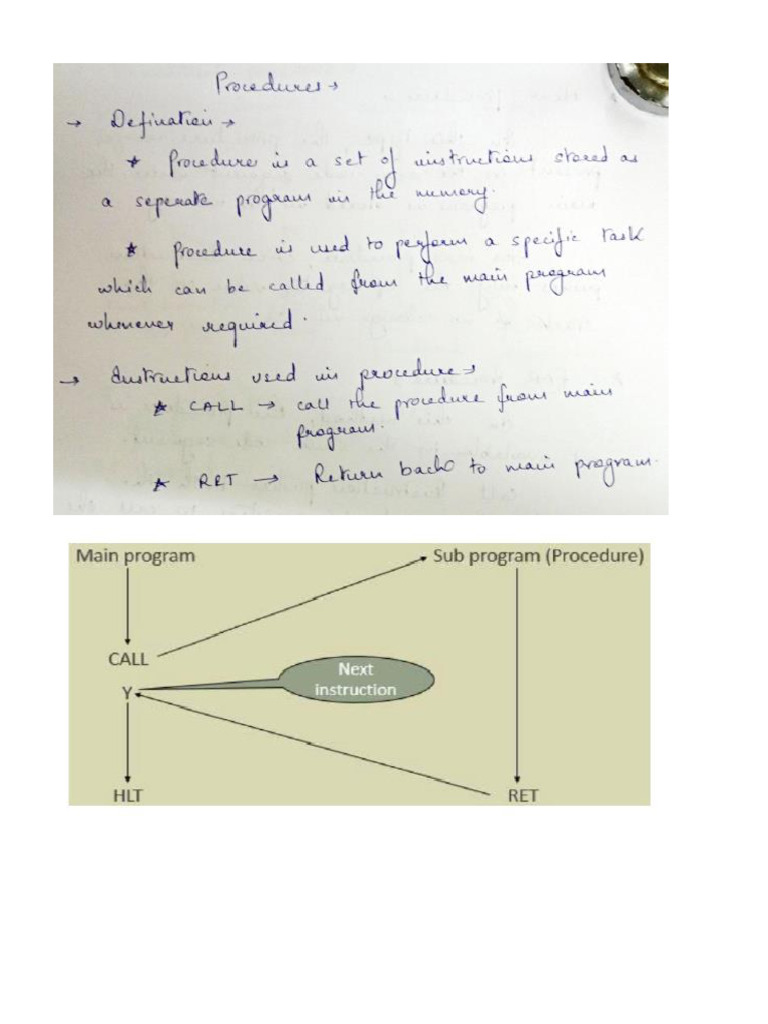 Procedures →
→ Defination →
* Procedure is a set of instructions stored as
a seperate program in the memory.
* Procedure is used to perform a specific task
which can be called from the main program
whenever required.
→ Instructions used in procedure →
* CALL → call the procedure from main
program.
* RET → Return back to main program.
Main program Sub program (Procedure)
CALL
Next
instruction
Y
HLT RET